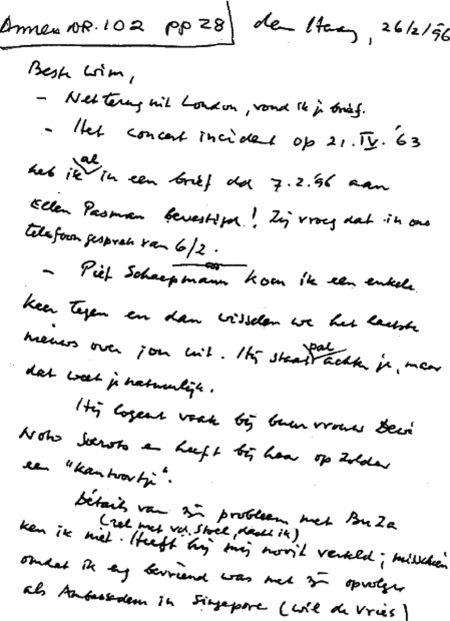 Annex NR. 102 pp 28
den Haag, 26/2/96
Beste Wim,
- Net terug uit London, vond ik je brief.
- Het concert incident op 21.IV.'63
heb ik al in een brief dd 7.2.'96 aan
Ellen Pasman bevestigd! Zij vroeg dat in ons
telefoongesprek van 6/2.
- Piet Schaepmann kom ik een enkele
keer tegen en dan wisselen we het laatste
nieuws over jou uit. Hij staat pal achter je, maar
dat weet je natuurlijk.
Hij logeert vaak bij buurvrouw Dewi
Noto Soeroto en heeft bij haar op zolder
een "kantoortje".
Details van zijn probleem met BuZa
(zal met v.d. Stoel, dacht ik)
ken ik niet. Heeft hij mij nooit verteld; misschien
omdat ik erg bevriend was met zijn opvolger
als Ambassadeur in Singapore (Wil de Vries)